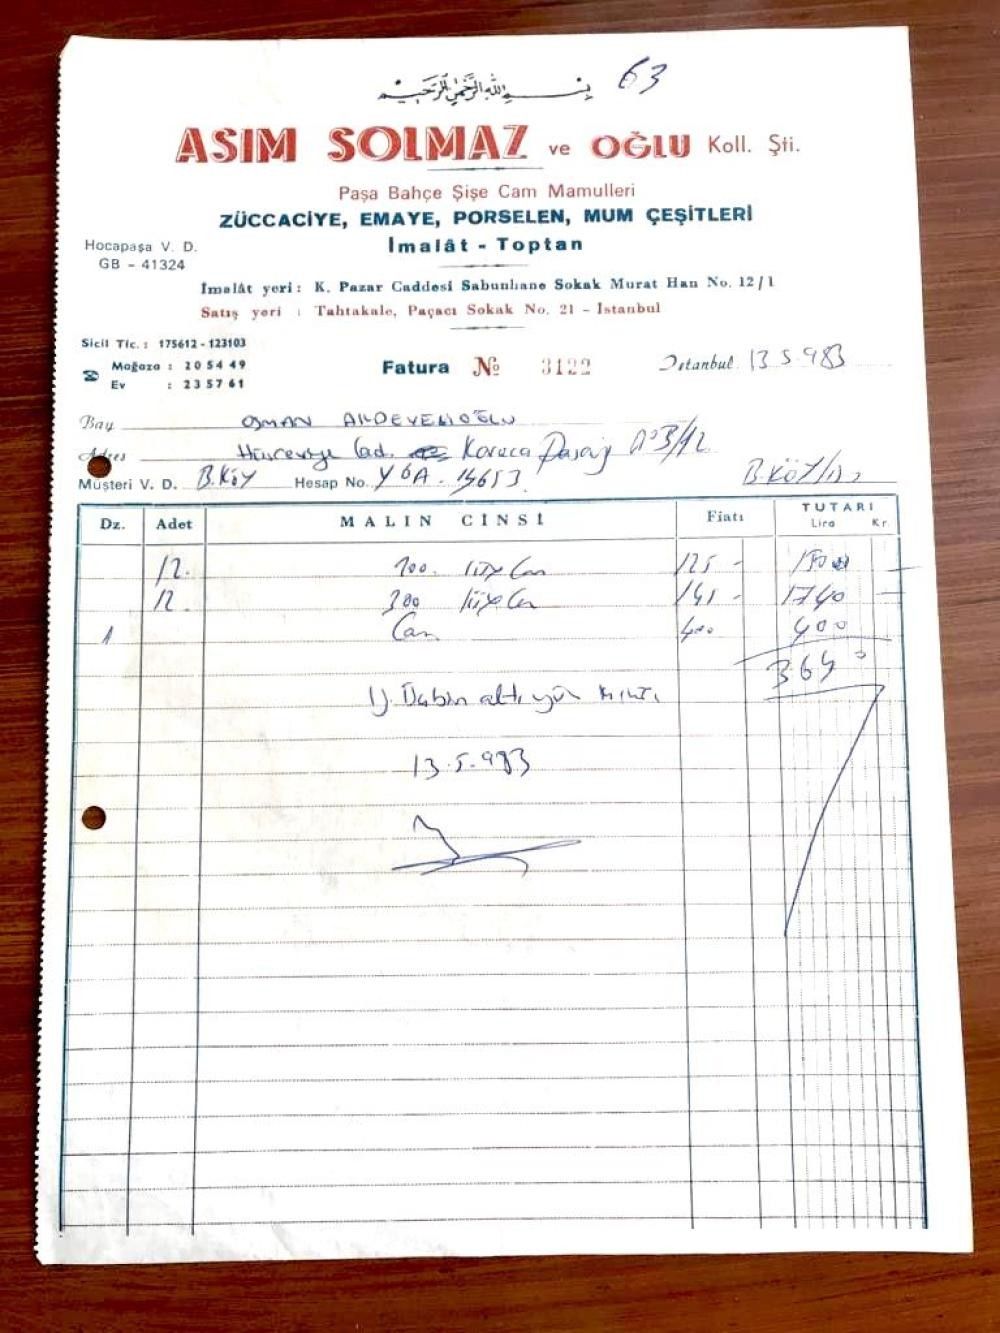 بسم الله الرحمن الرحيم
63
ASIM SOLMAZ ve OĞLU Koll. Şti.
Paşa Bahçe Şişe Cam Mamulleri
ZÜCCACİYE, EMAYE, PORSELEN, MUM ÇEŞİTLERİ
İmalât - Toptan
Hocapaşa V. D.
GB - 41324
İmalât yeri : K. Pazar Caddesi Sabunhane Sokak Murat Han No. 12/1
Satış yeri : Tahtakale, Paçacı Sokak No. 21 - İstanbul
Sicil Tic. : 175612 - 123103
Mağaza : 20 54 49
Ev : 23 57 61
Fatura № 3122
İstanbul 13.5.983
Bay OSMAN
Adres Cad. Karaca Pasajı No 3/12
Müşteri V. D. B.KÖY Hesap No.
Dz. Adet MALIN CİNSİ Fiatı TUTARI
Lira Kr.
12. 125 -
12. 300 145 - 1740 -
1 Cam 400 400
3640
13.5.983